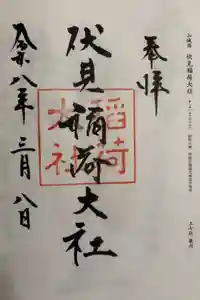 山城國 伏見稲荷大社
奉拝
伏見稲荷大社
稲荷
大社
令和八年三月八日